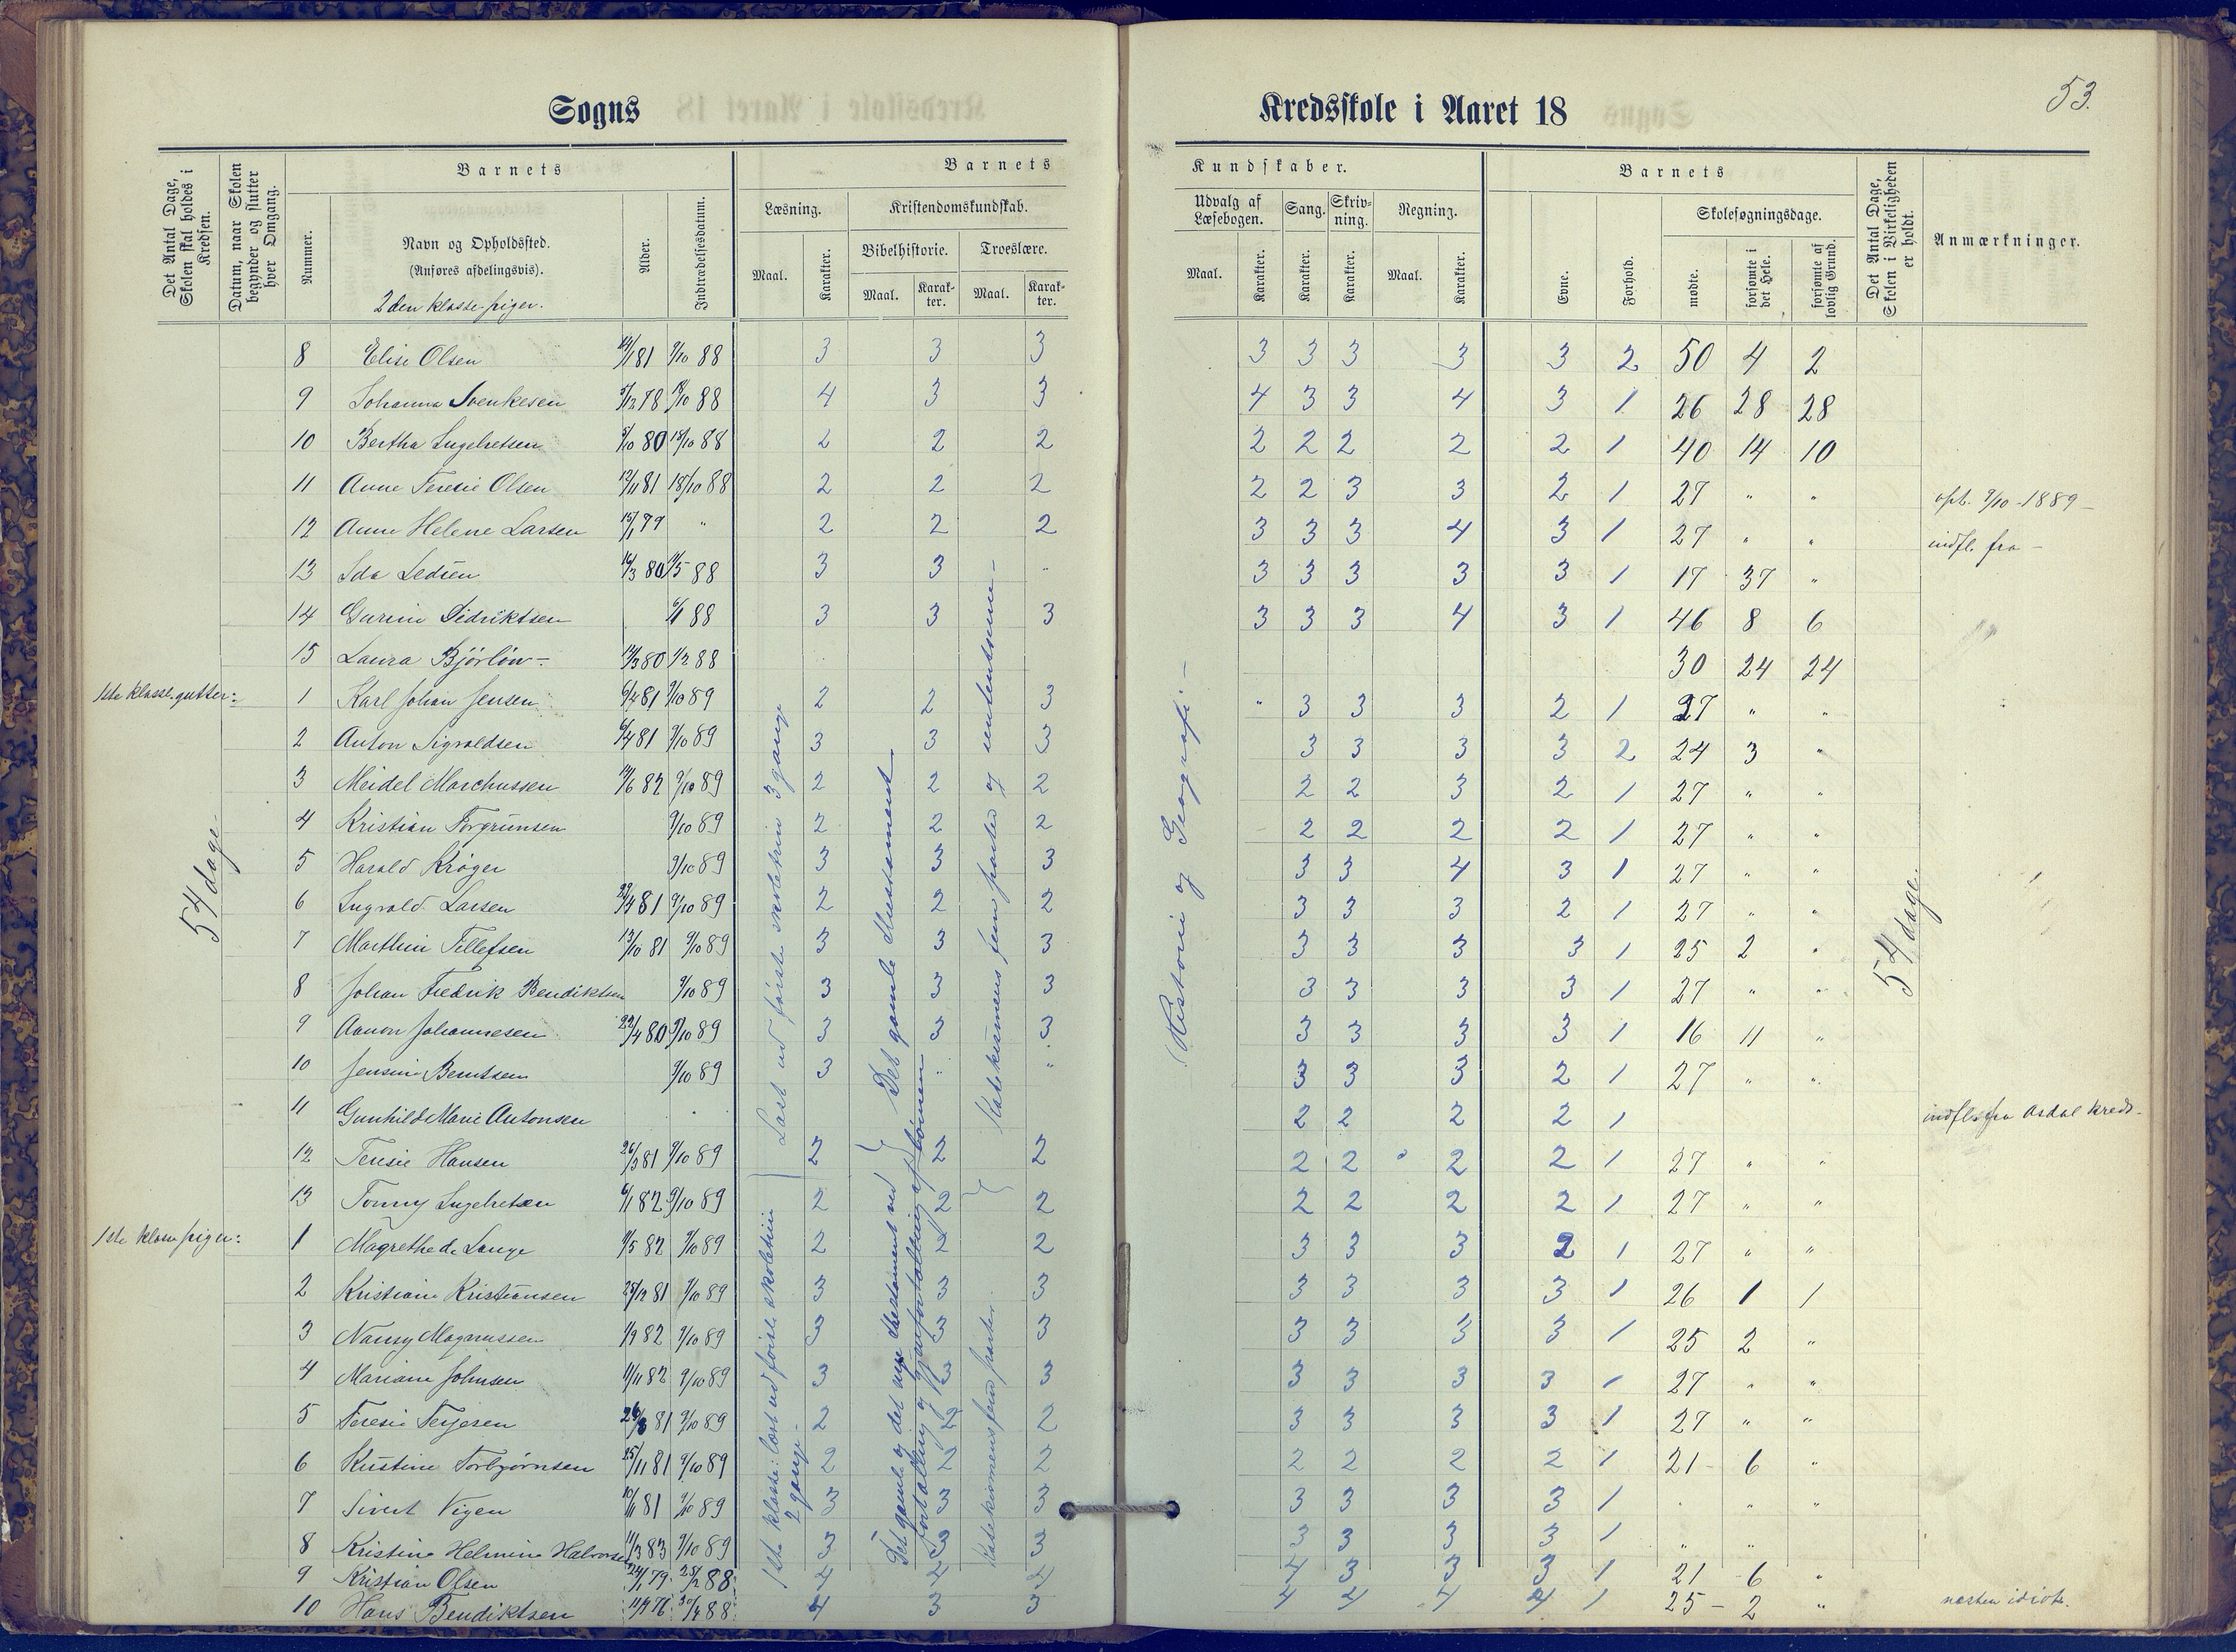 53.
Sogns Kredsskole i Aaret 18
Det Antal Dage, Skolen skal holdes i Kredsen.
Datum, naar Skolen begynder og slutter hver Omgang.
Barnets
Nummer.
Navn og Opholdssted.
(Anføres afdelingsvis).
2den klasse piger.
Alder.
Indtrædelsesdatum.
Barnets Kundskaber.
Læsning.
Maal.
Karakter.
Kristendomskundskab.
Bibelhistorie.
Maal.
Karakter.
Troeslære.
Maal.
Karakter.
Udvalg af Læsebogen.
Maal.
Karakter.
Sang.
Karakter.
Skrivning.
Karakter.
Regning.
Maal.
Karakter.
Barnets
Evne.
Forhold.
Skolesøgningsdage.
mødte.
forsømte i det Hele.
forsømte af lovlig Grund.
Det Antal Dage, Skolen i Virkeligheden er holdt.
Anmærkninger.
8 Elise Olsen 14/1 81 9/10 88 3 3 3 3 3 3 3 3 2 50 4 2
9 Johanna Svenkesen 5/12 78 88 4 3 3 4 3 3 4 3 1 26 28 28
10 Bertha Ingebretsen 5/10 80 15/10 88 2 2 2 2 2 2 2 2 1 40 14 10
11 Anne Teresie Olsen 12/11 81 15/10 88 2 2 2 2 2 3 3 2 1 27 " " opt. 9/10-1889-
12 Anne Helene Larsen 15/1 79 " 2 2 2 3 3 3 4 3 1 27 " " indfl. fra -
13 Ida Ledsen 16/3 80 1/5 88 3 3 " 3 3 3 3 3 1 17 37 "
14 Gurine Didriktsen 88 3 3 3 3 3 3 4 3 1 46 8 6
15 Laura Bjørløw - 12/3 80 1/2 88 30 24 24
1ste klasse gutter:
1 Karl Johan Jensen 6/4 81 9/10 89 2 2 3 " 3 3 3 2 1 27 " "
2 Anton Sigvaldsen 6/4 81 9/10 89 3 3 3 3 3 3 3 2 24 3 "
3 Meidel Marchussen 82 9/10 89 2 2 2 2 2 3 2 1 27 " "
4 Kristian Torgrimsen 9/10 89 2 2 2 2 2 2 2 1 27 " "
5 Harald Krøger 9/10 89 3 3 3 3 3 4 3 1 27 " "
6 Ingvald Larsen 81 9/10 89 2 2 2 3 3 3 2 1 27 " "
7 Marthin Tellefsen 13/10 81 9/10 89 3 3 3 3 3 3 3 1 25 2 "
8 Johan Fredrik Bendiktsen 9/10 89 3 3 3 3 3 3 3 1 27 " "
9 Aanon Johannesen 22/4 80 9/10 89 3 3 3 3 3 3 3 1 16 11 "
10 Jensine Berntsen 9/10 89 3 " " 3 3 3 2 1 27 " "
11 Gunhild Marie Antonsen 2 2 2 2 1 indfl. fra Asdal kreds.
12 Teresie Hansen 26/3 81 9/10 89 2 2 2 2 2 2 2 1 27 " "
13 Tonny Ingebretsen 6/1 82 9/10 89 2 2 2 2 2 2 2 1 27 " "
1ste klasse piger:
1 Magrethe de Lange 9/5 82 9/10 89 2 2 2 3 3 3 2 1 27 " "
2 Kristiane Kristiansen 25/12 81 9/10 89 3 3 3 3 3 3 3 1 26 1 1
3 Nansy Magnussen 1/9 82 9/10 89 3 3 3 3 3 3 3 1 25 2 "
4 Mariane Johnsen 11/11 82 9/10 89 3 3 3 3 3 3 3 1 27 " "
5 Teresie Terjesen 81 9/10 89 2 2 2 3 3 3 3 1 27 " "
6 Kristine Torbjørnsen 25/11 81 9/10 89 2 2 2 2 2 2 2 1 21 - 6 "
7 Sivert Vigen 81 9/10 89 3 3 3 3 3 3 3 1 " " "
8 Kristine Helmine Halvorsen 11/3 83 9/10 89 3 3 3 3 3 3 3 1 " "
9 Kristian Olsen 79 88 4 4 4 4 3 3 3 1 21 - 6 "
10 Hans Bendiktsen 88 4 3 3 4 4 4 4 1 25 - 2 " næsten idiot.
54 dage -
Læst ud første skoletrin 3 gange
1ste klasse: læst ud første skoletrin 2 gange -
Det gamle Thestament
Det gamle og det nye Thestament ved fortælling og gjenfortælling af børnene
Katekismens fem parter og sententserne -
Katekismens fem parter.
(Historie og Geografi. -
54 dage.